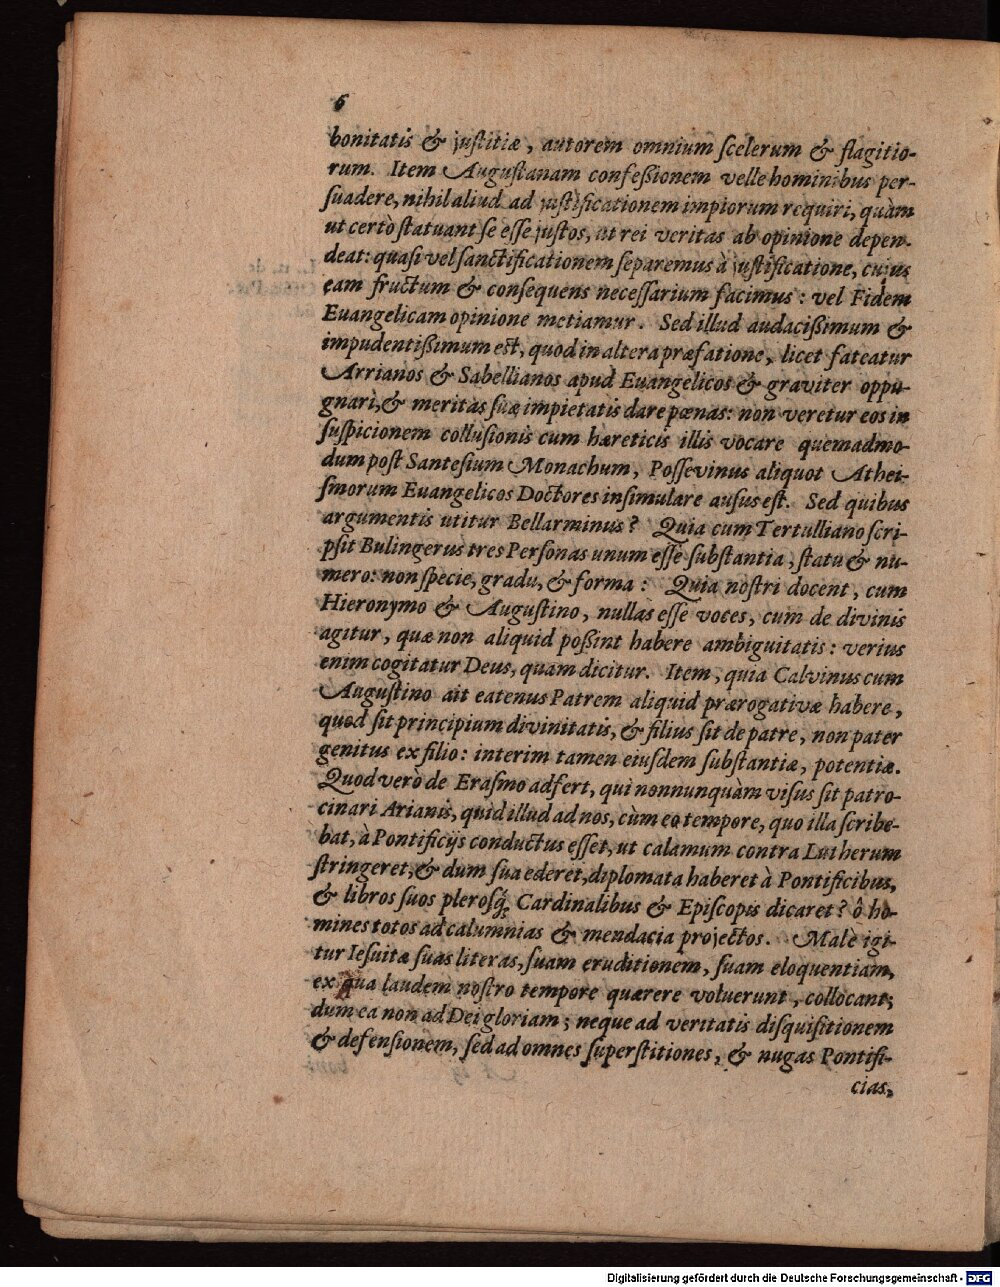 6
bonitatis & justitiæ, autorem omnium scelerum & flagitio-
rum. Item Augustanam confeßionem velle hominibus per-
suadere, nihil aliud ad justificationem impiorum requiri, quàm
ut certò statuant se esse justos, ut rei veritas ab opinione depen-
deat: quasi vel sanctificationem separemus à justificatione, cujus
eam fructum & consequens necessarium facimus: vel Fidem
Euangelicam opinione metiamur. Sed illud audacißimum &
impudentißimum est, quod in altera præfatione, licet fateatur
Arrianos & Sabellianos apud Euangelicos & graviter oppu-
gnari, & meritas suæ impietatis dare pœnas: non veretur eos in
suspicionem collusionis cum hæreticis illis vocare quemadmo-
dum post Santesium Monachum, Possevinus aliquot Athei-
smorum Euangelicos Doctores insimulare ausus est. Sed quibus
argumentis utitur Bellarminus? Quia cum Tertulliano scri-
psit Bulingerus tres Personas unum esse substantia, statu & nu-
mero: non specie, gradu, & forma: Quia nostri docent, cum
Hieronymo & Augustino, nullas esse voces, cum de divinis
agitur, quæ non aliquid poßint habere ambiguitatis: verius
enim cogitatur Deus, quam dicitur. Item, quia Calvinus cum
Augustino ait eatenus Patrem aliquid prærogativæ habere,
quod sit principium divinitatis, & filius sit de patre, non pater
genitus ex filio: interim tamen eiusdem substantiæ, potentiæ.
Quod verò de Erasmo adfert, qui nonnunquàm visus sit patro-
cinari Arianis, quid illud ad nos, cùm eo tempore, quo illa scribe-
bat, à Pontificijs conductus esset, ut calamum contra Lutherum
stringeret, & dum sua ederet, diplomata haberet à Pontificibus,
& libros suos plerosq́; Cardinalibus & Episcopis dicaret? ô ho-
mines totos ad calumnias & mendacia projectos. Malè igi-
tur Iesuitæ suas literas, suam eruditionem, suam eloquentiam,
ex qua laudem nostro tempore quærere voluerunt, collocant;
dum ea non ad Dei gloriam; neque ad veritatis disquisitionem
& defensionem, sed ad omnes superstitiones, & nugas Pontifi-
cias,
Digitalisierung gefördert durch die Deutsche Forschungsgemeinschaft - DFG